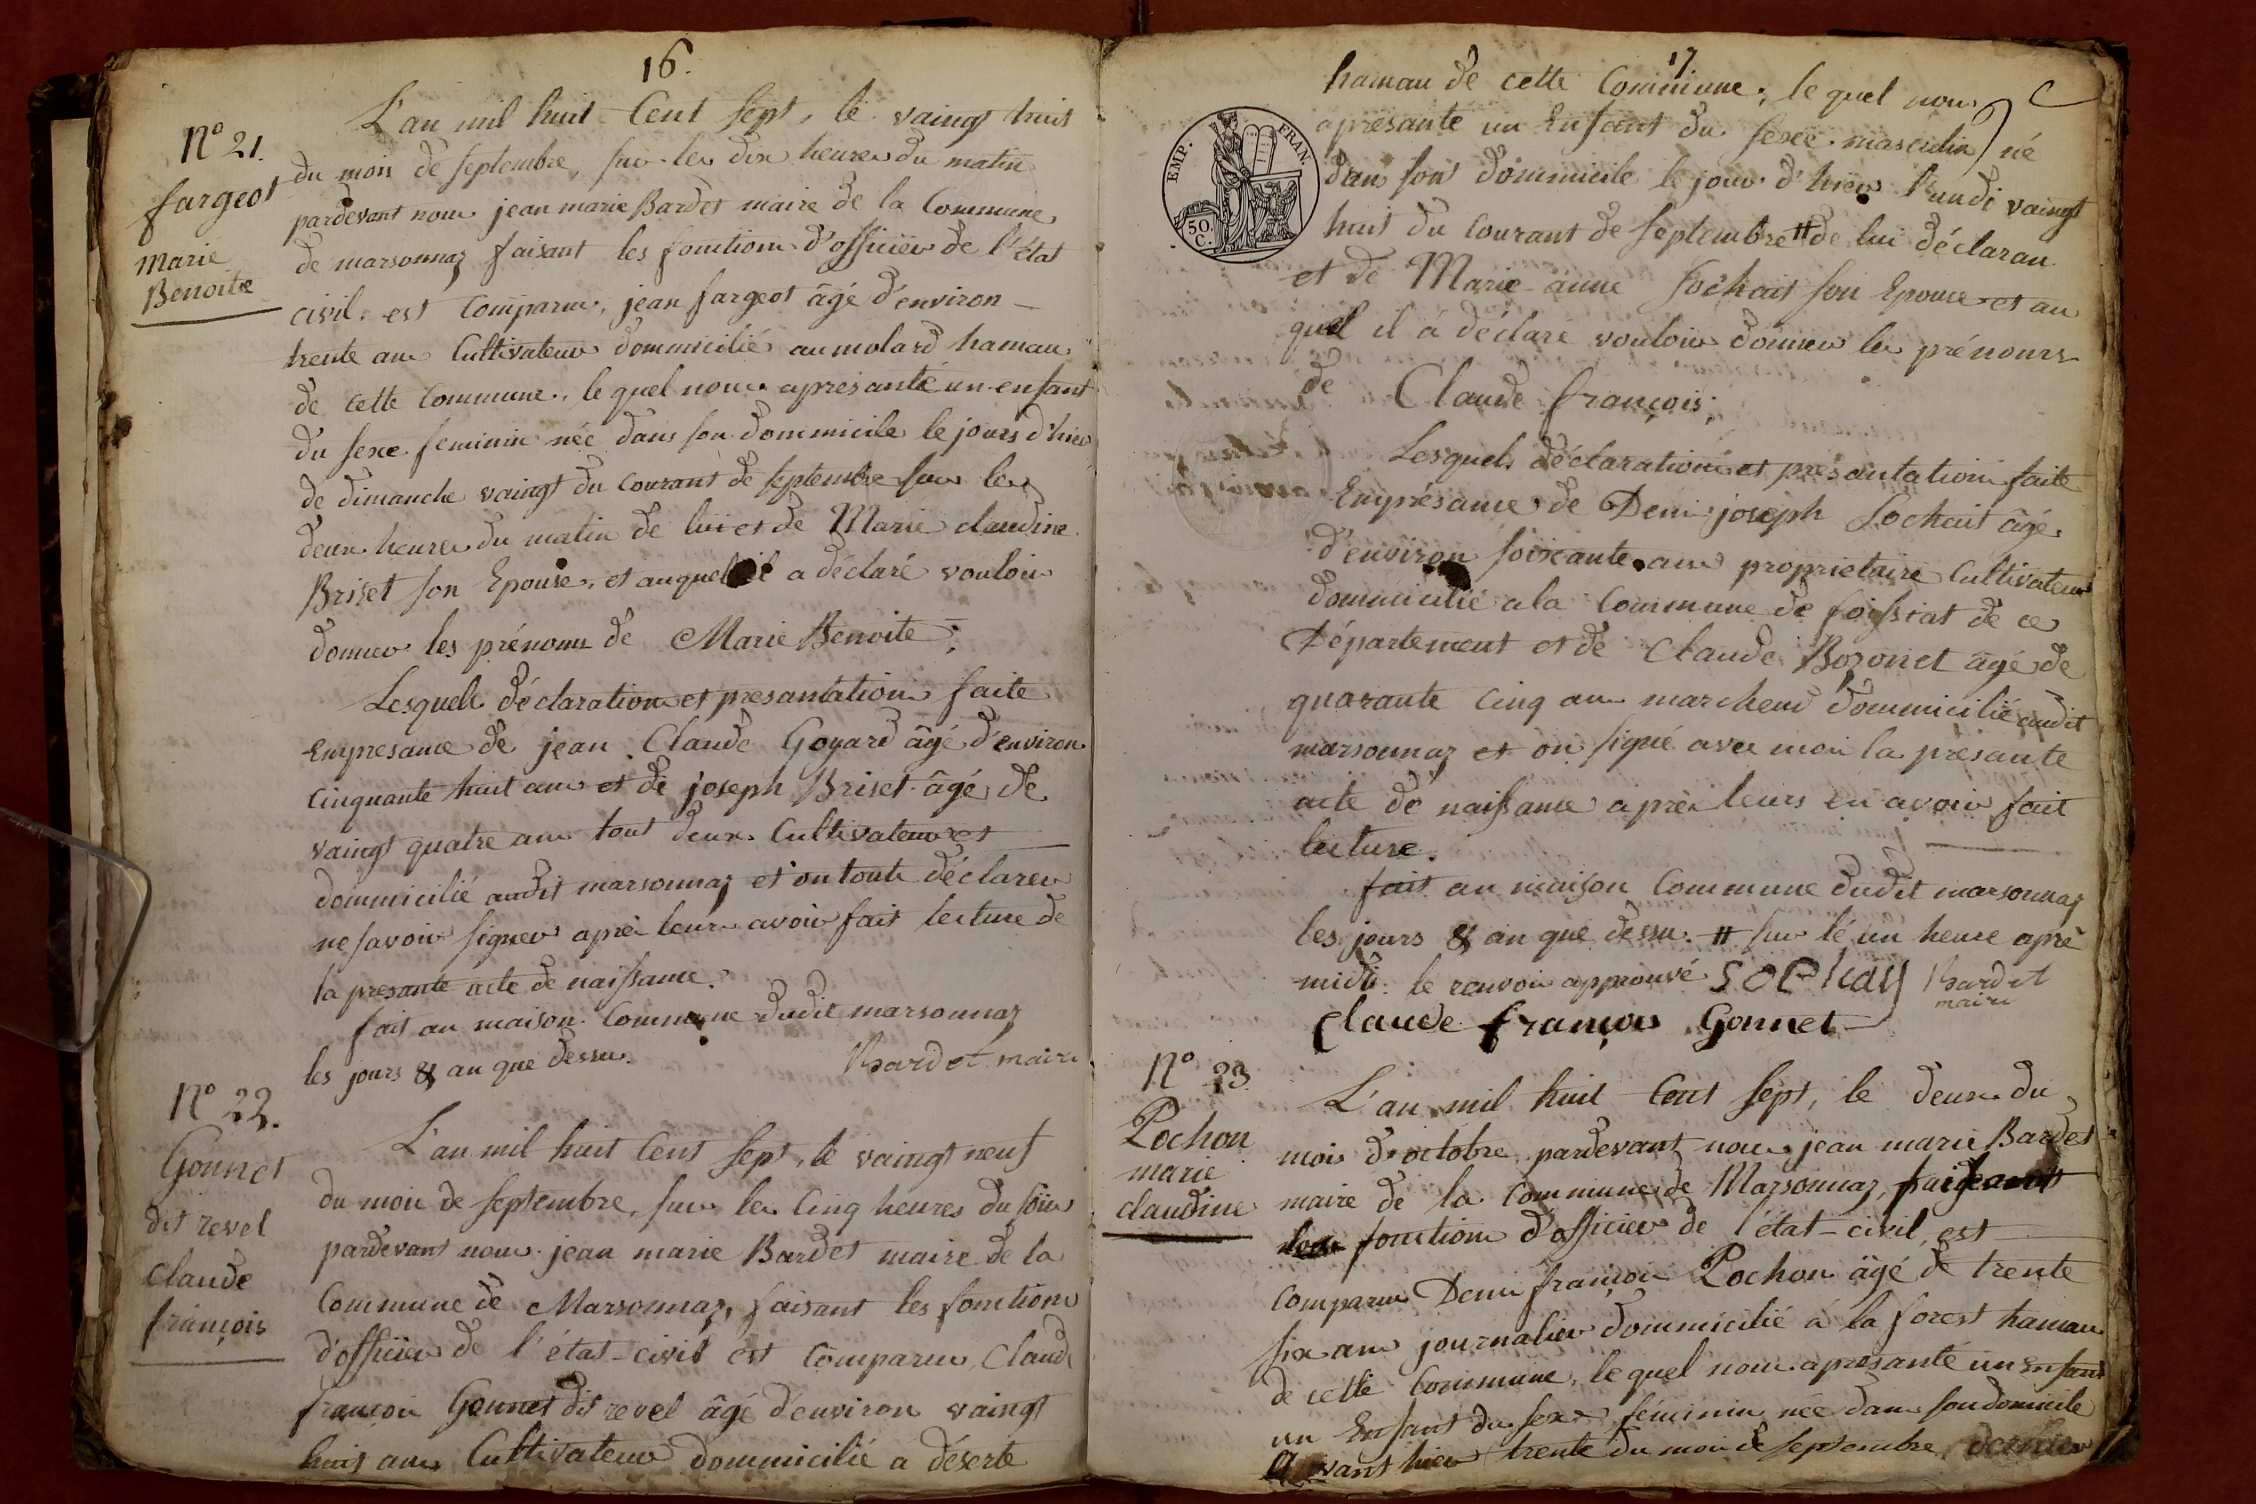 16.
N° 21.
fargeot
Marie
Benoite
L'an mil huit Cent sept, le vaingt huit
du mois de septembre, sur les dix heures du matin
pardevant nous jean marie Bardet maire de la Commune
de marsonnaz faisant les fonctions d'officier de l'état
civil. est Comparus, jean fargeot âgé d'environ
trente ans Cultivateur dommicilié au molard hamau
de cette Commune, le quel nous apresanté un enfant
du sexe feminin née dans son dommicile le jours d'hier
de dimanche vaingt du Courant de septembre sur les
deux heures du matin de lui et de Marie claudine
Briset son Epouse, et auquel il a déclaré vouloir
donner les prénoms de Marie Benoite;
Lesquels déclaration et presantation faite
Enpresance de jean Claude Goyard âgé d'environ
Cinquante huit ans et de joseph Briset âgé de
vaingt quatre ans tout deux Cultivateurs et
dommicilié audit marsonnaz et on touts déclarer
ne savoir signer après leurs avoir fait lecture de
la presante acte de naissance.
fait au maison Commune dudit marsonnaz
les jours & an que dessu. Bardet maire
N° 22.
Gonnet
dit revel
Claude
françois
L'an mil huit Cent sept, le vaingt neuf
du mois de septembre, sur les Cinq heures du soir
pardevant nous jean marie Bardet maire de la
Commune de Marsonnaz, faisant les fonctions
d'officier de l'état-civil est Comparus, Claude
françois Gonnet dit revel âgé d'environ vaingt
huit ans Cultivateur dommicilié a déserte
17.
hamau de cette Commune, le quel nous
apresanté un Enfant du sexe masculin né
dans son dommicile le jour d'hier lundi vaingt
huit du Courant de septembre # de lui déclaran
et de Marie-anne Sochait son Epouse et au
quel il à déclaré vouloir donner les prénoms
de Claude françois;
EMP. FRAN.
50.
C.
Lesquels déclaration et presantation faite
Enprésance de Deni joseph Sochait âgé
d'environ soixante ans proprietaire Cultivateur
dommicilié a la Commune de foissiat de ce
Département et de Claude Bozonet âgé de
quarante Cinq ans marchend dommicilié audit
marsonnaz et on signé avec moi la présante
acte de naissance après leurs en avoir fait
lecture.
fait au maison Commune dudit marsonnaz
les jours & an que dessu. # sur lé un heure aprè
midi. le renvoi approuvé Sochay Bardet
maire
Claude françois Gonnet
N° 23.
Pochon
marie
claudine
L'an mil huit Cent sept, le deux du
mois d'octobre, pardevant nous jean marie Bardet
maire de la Commune de Marsonnaz, faisant
les fonctions d'officier de l'état-civil, est
Comparus Deni françois Pochon âgé de trente
six ans journalier dommicilié à la forest hamau
de cette Commune, le quel nous apresanté un Enfant
un Enfant du sexe féminin née dans son domicile
avant hier trente du mois de septembre dernier